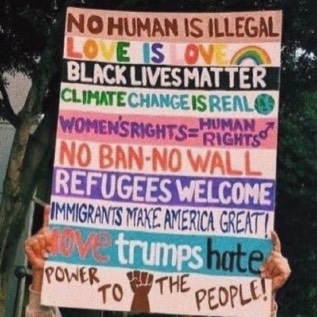 NO HUMAN IS ILLEGAL
LOVE IS LOVE
BLACK LIVES MATTER
CLIMATE CHANGE IS REAL
WOMEN'S RIGHTS = HUMAN RIGHTS
NO BAN-NO WALL
REFUGEES WELCOME
IMMIGRANTS MAKE AMERICA GREAT!
love trumps hate
POWER TO THE PEOPLE!